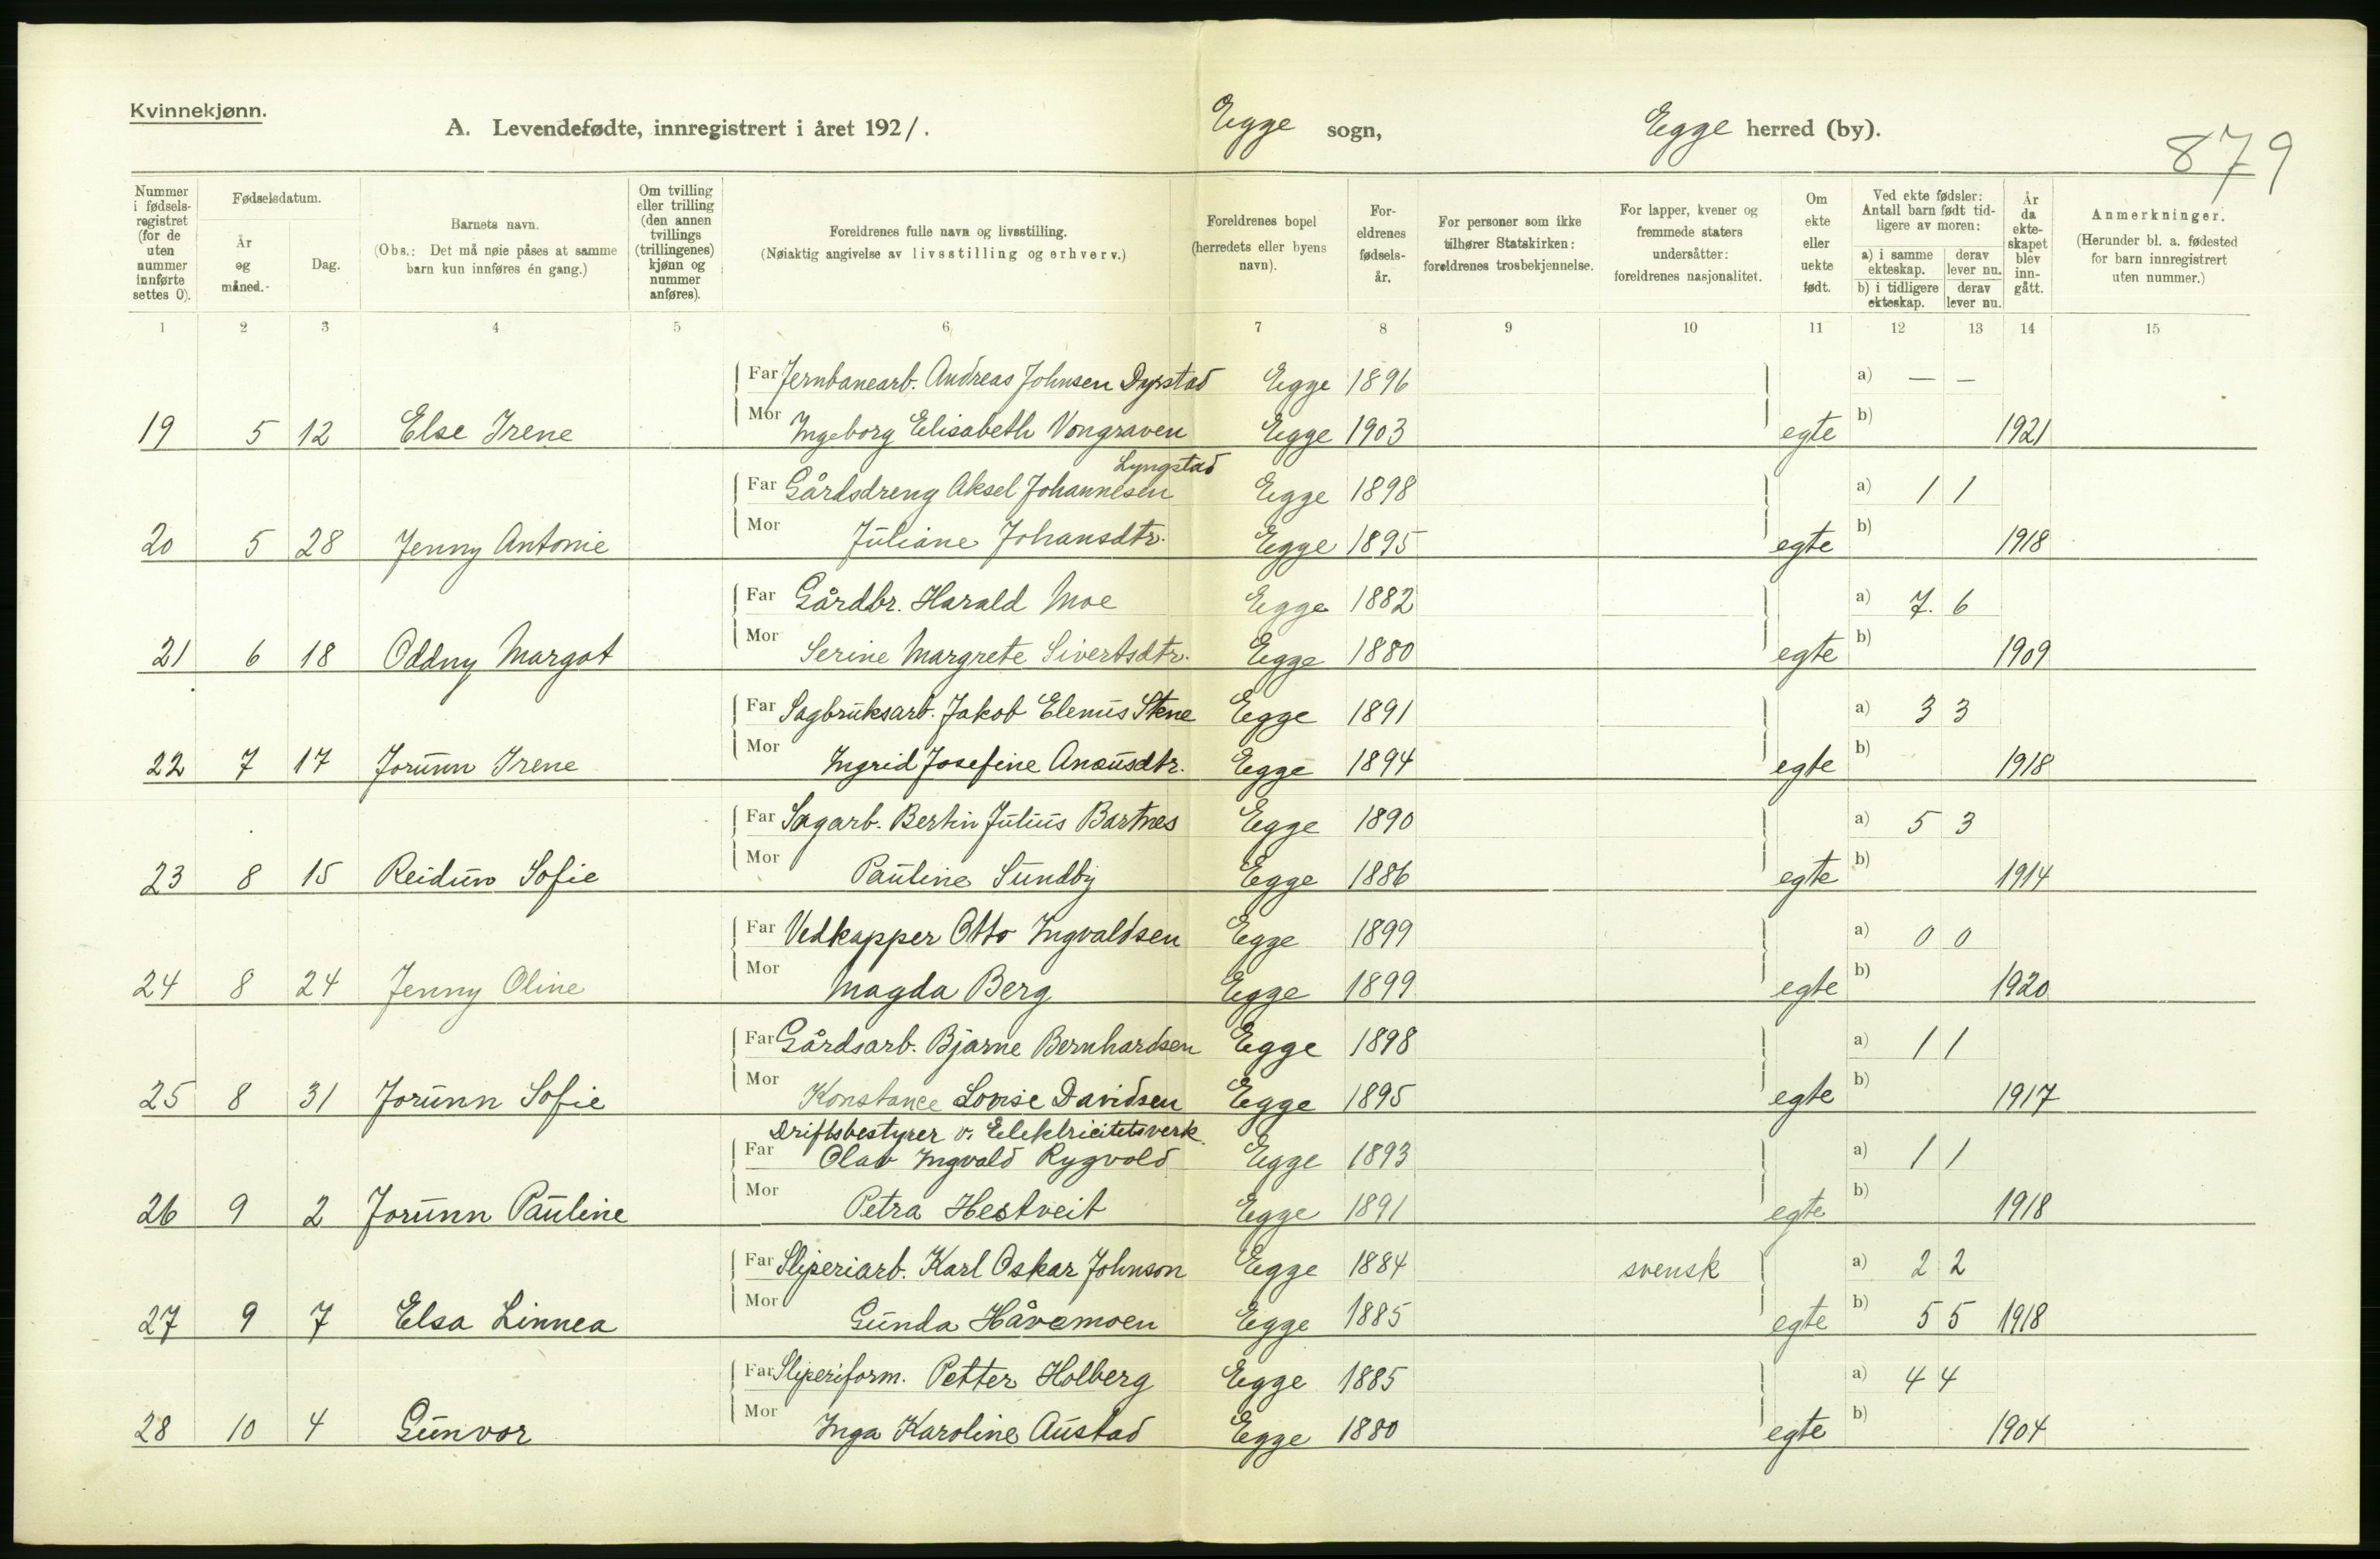 Kvinnekjønn.
A. Levendefødte, innregistrert i året 1921.
Egge sogn, Egge herred (by).
879
Nummer i fødsels-registret (for de uten nummer innførte settes 0).
Fødselsdatum.
År og måned.
Dag.
Barnets navn.
(Obs.: Det må nøie påses at samme barn kun innføres én gang.)
Om tvilling eller trilling (den annen tvillings (trillingenes) kjønn og nummer anføres).
Foreldrenes fulle navn og livsstilling.
(Nøiaktig angivelse av livsstilling og erhverv.)
Foreldrenes bopel (herredets eller byens navn).
For-eldrenes fødsels-år.
For personer som ikke tilhører Statskirken: foreldrenes trosbekjennelse.
For lapper, kvener og fremmede staters undersåtter: foreldrenes nasjonalitet.
Om ekte eller uekte født.
Ved ekte fødsler: Antall barn født tid-ligere av moren:
a) i samme ekteskap. derav lever nu.
b) i tidligere ekteskap. derav lever nu.
År da ekte-skapet blev inn-gått.
Anmerkninger.
(Herunder bl. a. fødested for barn innregistrert uten nummer.)
1 2 3 4 5 6 7 8 9 10 11 12 13 14 15
Far Jernbanearb. Andreas Johnsen Dyrstad Egge 1896 a) — —
19 5 12 Else Irene Mor Ingeborg Elisabeth Vongraven Egge 1903 egte b) 1921
Lyngstad
Far Gårdsdreng Aksel Johannesen Egge 1898 a) 1 1
20 5 28 Jenny Antonie Mor Juliane Johansdtr. Egge 1895 egte b) 1918
Far Gårdbr. Harald Moe Egge 1882 a) 7. 6
21 6 18 Oddny Margot Mor Serine Margrete Sivertsdtr. Egge 1880 egte b) 1909
Far Sagbruksarb. Jakob Elenus Stene Egge 1891 a) 3 3
22 7 17 Jorunn Irene Mor Ingrid Josefine Anausdtr. Egge 1894 egte b) 1918
Far Sagarb. Bertin Julius Bartnes Egge 1890 a) 5 3
23 8 15 Reidun Sofie Mor Pauline Sundby Egge 1886 egte b) 1914
Far Vedkapper Otto Ingvaldsen Egge 1899 a) 0 0
24 8 24 Jenny Oline Mor Magda Berg Egge 1899 egte b) 1920
Far Gårdsarb. Bjarne Bernhardsen Egge 1898 a) 1 1
25 8 31 Jorunn Sofie Mor Konstance Lovise Davidsen Egge 1895 egte b) 1917
Driftsbestyrer v. Elektricitetsverk
Far Olav Ingvald Rygvold Egge 1893 a) 1 1
26 9 2 Jorunn Pauline Mor Petra Hestveit Egge 1891 egte b) 1918
Far Sliperiarb. Karl Oskar Johnson Egge 1884 svensk a) 2 2
27 9 7 Elsa Linnea Mor Gunda Håvamoen Egge 1885 egte b) 5 5 1918
Far Sliperiform. Petter Holberg Egge 1885 a) 4 4
28 10 4 Gunvor Mor Inga Karoline Austad Egge 1880 egte b) 1904